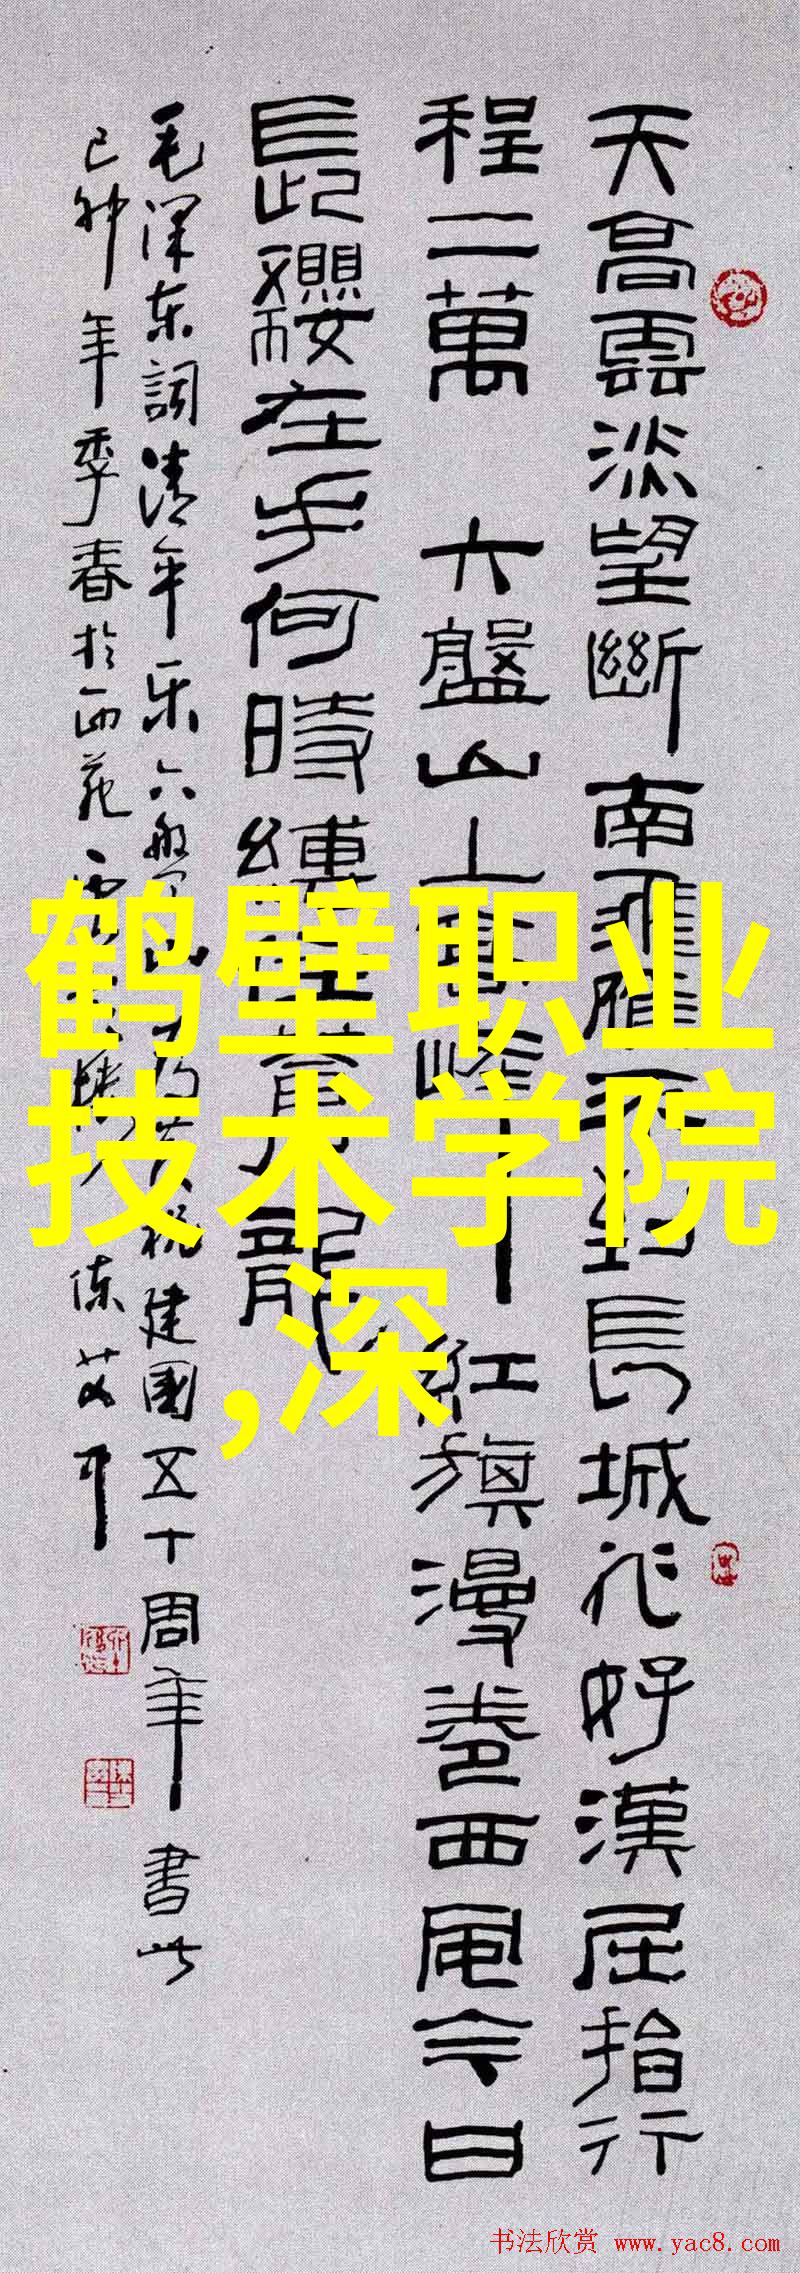 天高雲淡望斷南飛雁不到長城非好漢屈指行
程二萬 六盤山上高峰 紅旗漫卷西風今日
長纓在手何時縛住蒼龍
毛澤东詞清平乐六盤山 祝建國五十周年書此
己卯年季春於西苑 陈艾
鹤壁职业
技术学院
,深
书法欣赏 www.yac8.com